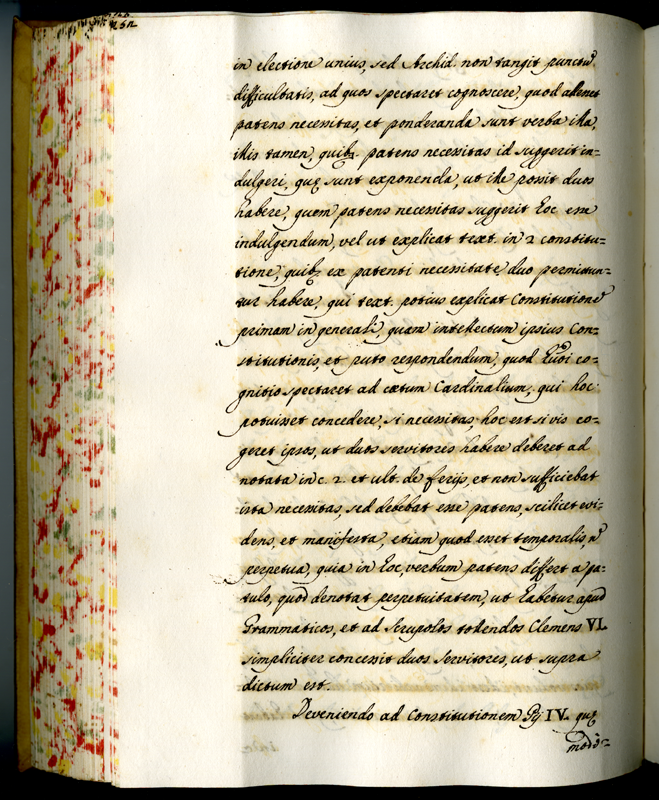 in electione unius, sed Archid. non tangit punctũ
difficultatis, ad quos spectaret cognoscere, quod adesset
patens necessitas, et ponderanda sunt verba illa,
illis tamen, quibꝫ patens necessitas id suggerit in=
dulgeri, quę sunt exponenda, ut ille possit duos
habere, quem patens necessitas suggerit hoc esse
indulgendum, vel ut explicat text. in 2 constitu=
tione, quibꝫ ex patenti necessitate duo permittun=
tur habere, qui text. potius explicat Constitutionẽ
primam in generali, quam intellectum ipsius Con=
stitutionis, et puto respondendum, quod co=
gnitio spectaret ad cœtum Cardinalium, qui hoc
potuisset concedere, si necessitas, hoc est si vis co=
geret ipsos, ut duos servitores habere deberet ad
notata in c. 2. et ult. de ferijs, et non sufficiebat
ista necessitas, sed debebat esse patens, scilicet evi=
dens, et manifesta, etiam quod esset temporalis, nõ
perpetua, quia in hoc, verbum patens differt a pa=
tulo, quod denotat perpetuitatem, ut habetur apud
Grammaticos, et ad scrupolos tollendos Clemens VI.
simpliciter concessit duos servitores, ut supra
dictum est.
Deveniendo ad Constitutionem Pij IV. quę